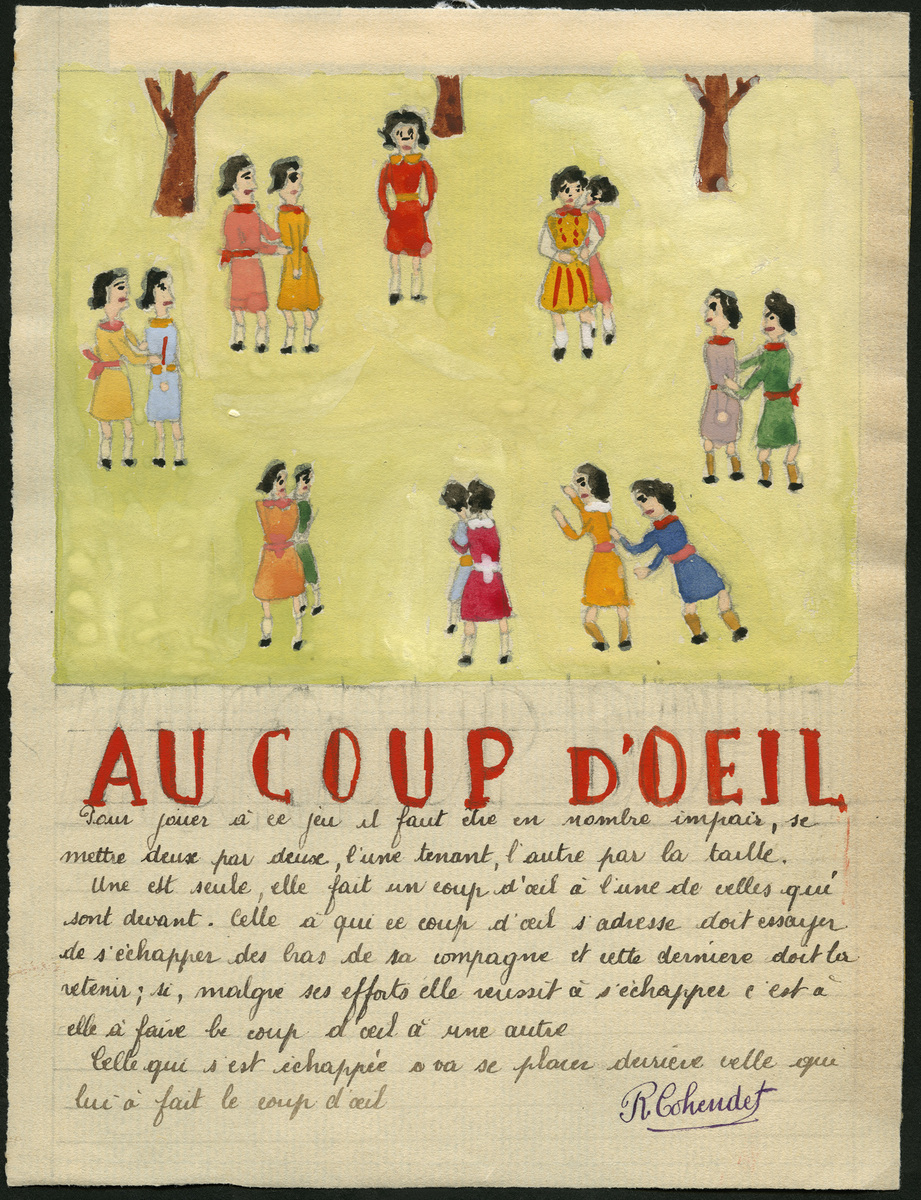 AU COUP D'OEIL
Pour jouer à ce jeu il faut être en nombre impair, se
mettre deux par deux, l'une tenant, l'autre par la taille.
Une est seule, elle fait un coup d'œil à l'une de celles qui
sont devant. Celle à qui ce coup d'œil s'adresse doit essayer
de s'échapper des bras de sa compagne et cette dernière doit la
retenir ; si, malgre ses efforts elle reussit à s'échapper c'est à
elle à faire le coup d'œil à une autre
Celle qui s'est échappée va se placer derrière celle qui
lui à fait le coup d'œil
R Cohendet